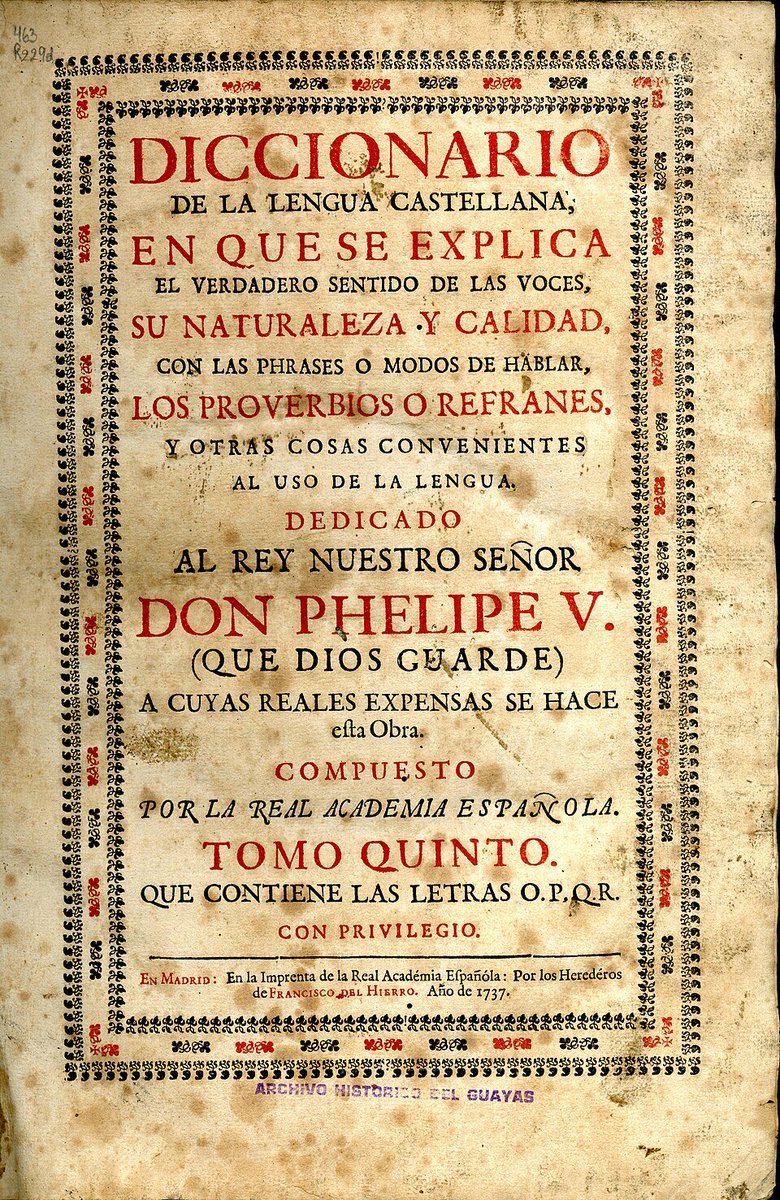 463
R229d
DICCIONARIO
DE LA LENGUA CASTELLANA,
EN QUE SE EXPLICA
EL VERDADERO SENTIDO DE LAS VOCES,
SU NATURALEZA Y CALIDAD,
CON LAS PHRASES O MODOS DE HABLAR,
LOS PROVERBIOS O REFRANES,
Y OTRAS COSAS CONVENIENTES
AL USO DE LA LENGUA.
DEDICADO
AL REY NUESTRO SEÑOR
DON PHELIPE V.
(QUE DIOS GUARDE)
A CUYAS REALES EXPENSAS SE HACE
eſta Obra.
COMPUESTO
POR LA REAL ACADEMIA ESPAÑOLA.
TOMO QUINTO.
QUE CONTIENE LAS LETRAS O.P.Q.R.
CON PRIVILEGIO.
EN MADRID: En la Imprenta de la Real Académia Eſpañóla: Por los Heredéros
de FRANCISCO DEL HIERRO. Año de 1737.
ARCHIVO HISTORICO DEL GUAYAS